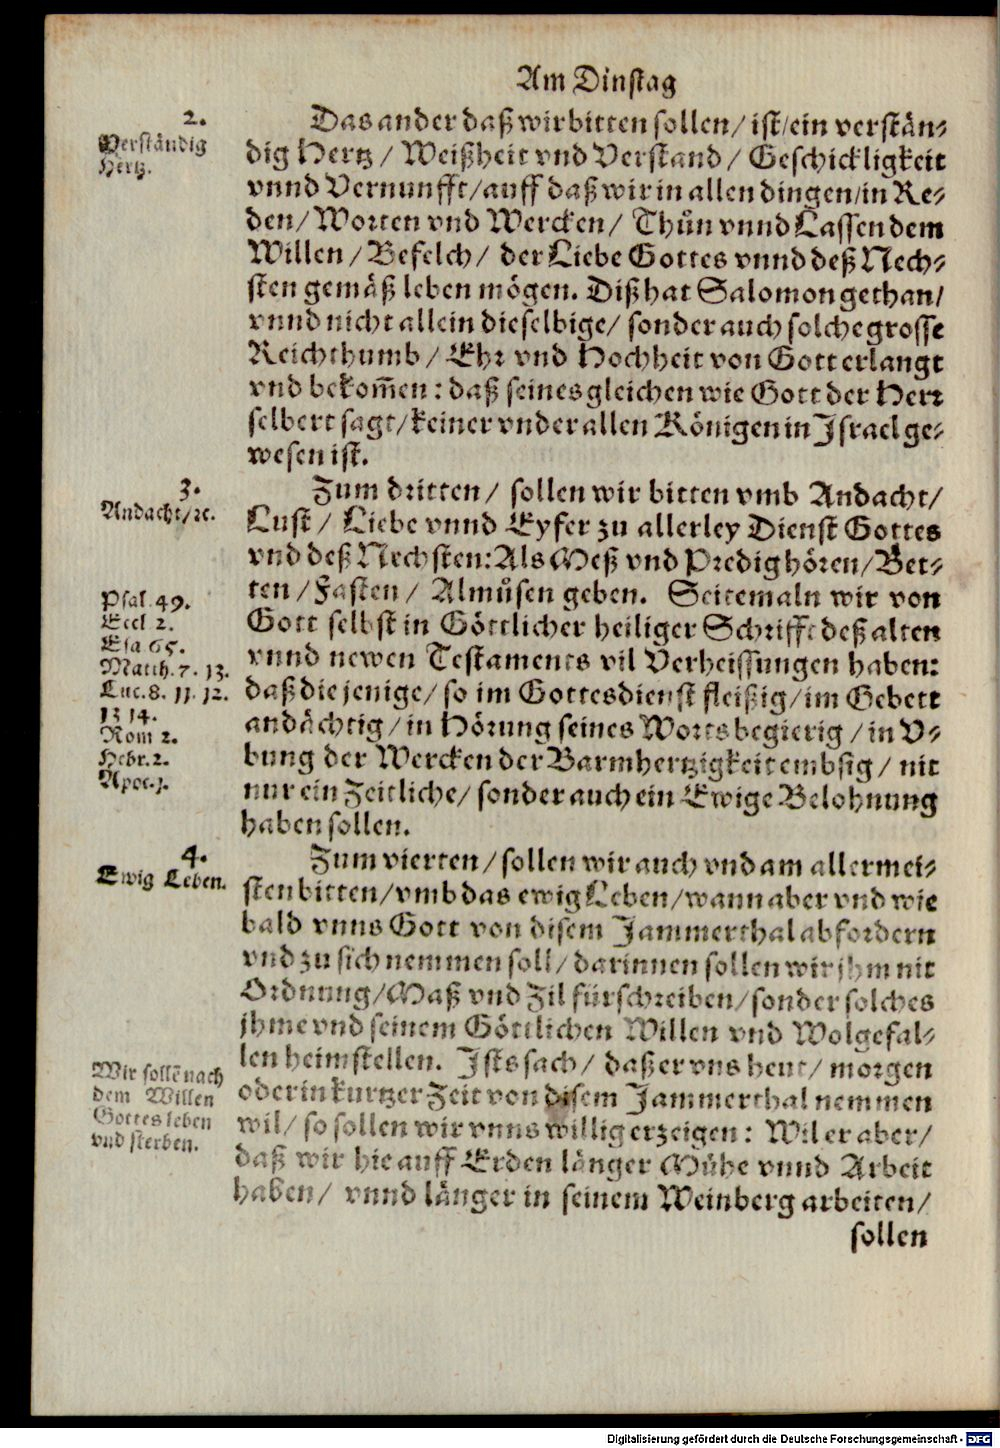 Am Dinstag
2.
Verständig
Hertz.
Das ander daß wir bitten sollen/ ist/ ein verstän-
dig Hertz / Weißheit vnd Verstand / Geschickligkeit
vnnd Vernunfft/ auff daß wir in allen dingen/ in Re-
den/ Worten vnd Wercken/ Thůn vnnd Lassen dem
Willen / Befelch / der Liebe Gottes vnnd deß Nech-
sten gemäß leben mögen. Diß hat Salomon gethan/
vnnd nicht allein dieselbige/ sonder auch solche grosse
Reichthumb / Ehr vnd Hochheit von Gott erlangt
vnd bekom̃en: daß seines gleichen wie Gott der Herr
selbert sagt/ keiner vnder allen Königen in Israel ge-
wesen ist.
3.
Andacht/ ꝛc.
Zum dritten/ sollen wir bitten vmb Andacht/
Lust / Liebe vnnd Eyfer zu allerley Dienst Gottes
vnd deß Nechsten: Als Meß vnd Predig hören/ Bet-
ten / Fasten / Almůsen geben. Seitemaln wir von
Gott selbst in Göttlicher heiliger Schrifft deß alten
vnnd newen Testaments vil Verheissungen haben:
daß die jenige/ so im Gottesdienst fleißig/ im Gebett
andächtig / in Hörung seines Worts begierig / in V-
bung der Wercken der Barmhertzigkeit embsig / nit
nur ein Zeitliche/ sonder auch ein Ewige Belohnung
haben sollen.
Psal. 49.
Eccl 2.
Esa 65.
Matth. 7. 13.
Luc. 8. 11. 12.
13 14.
Rom 2.
Hebr. 2.
Apoc. 3.
4.
Ewig Leben.
Zum vierten/ sollen wir auch vnd am allermei-
sten bitten/ vmb das ewig Leben/ wann aber vnd wie
bald vnns Gott von disem Jammerthal abfordern
vnd zu sich nemmen soll/ darinnen sollen wir jhm nit
Ordnung/ Maß vnd Zil fürschreiben/ sonder solches
jhme vnd seinem Göttlichen Willen vnd Wolgefal-
len heimstellen. Ists sach/ daß er vns heut/ morgen
oder in kurtzer Zeit von disem Jammerthal nemmen
wil/ so sollen wir vnns willig erzeigen: Wil er aber/
daß wir hie auff Erden länger Mühe vnnd Arbeit
haben/ vnnd länger in seinem Weinberg arbeiten/
Wir sollē nach
dem Willen
Gottes leben
vnd sterben.
sollen
Digitalisierung gefördert durch die Deutsche Forschungsgemeinschaft - DFG